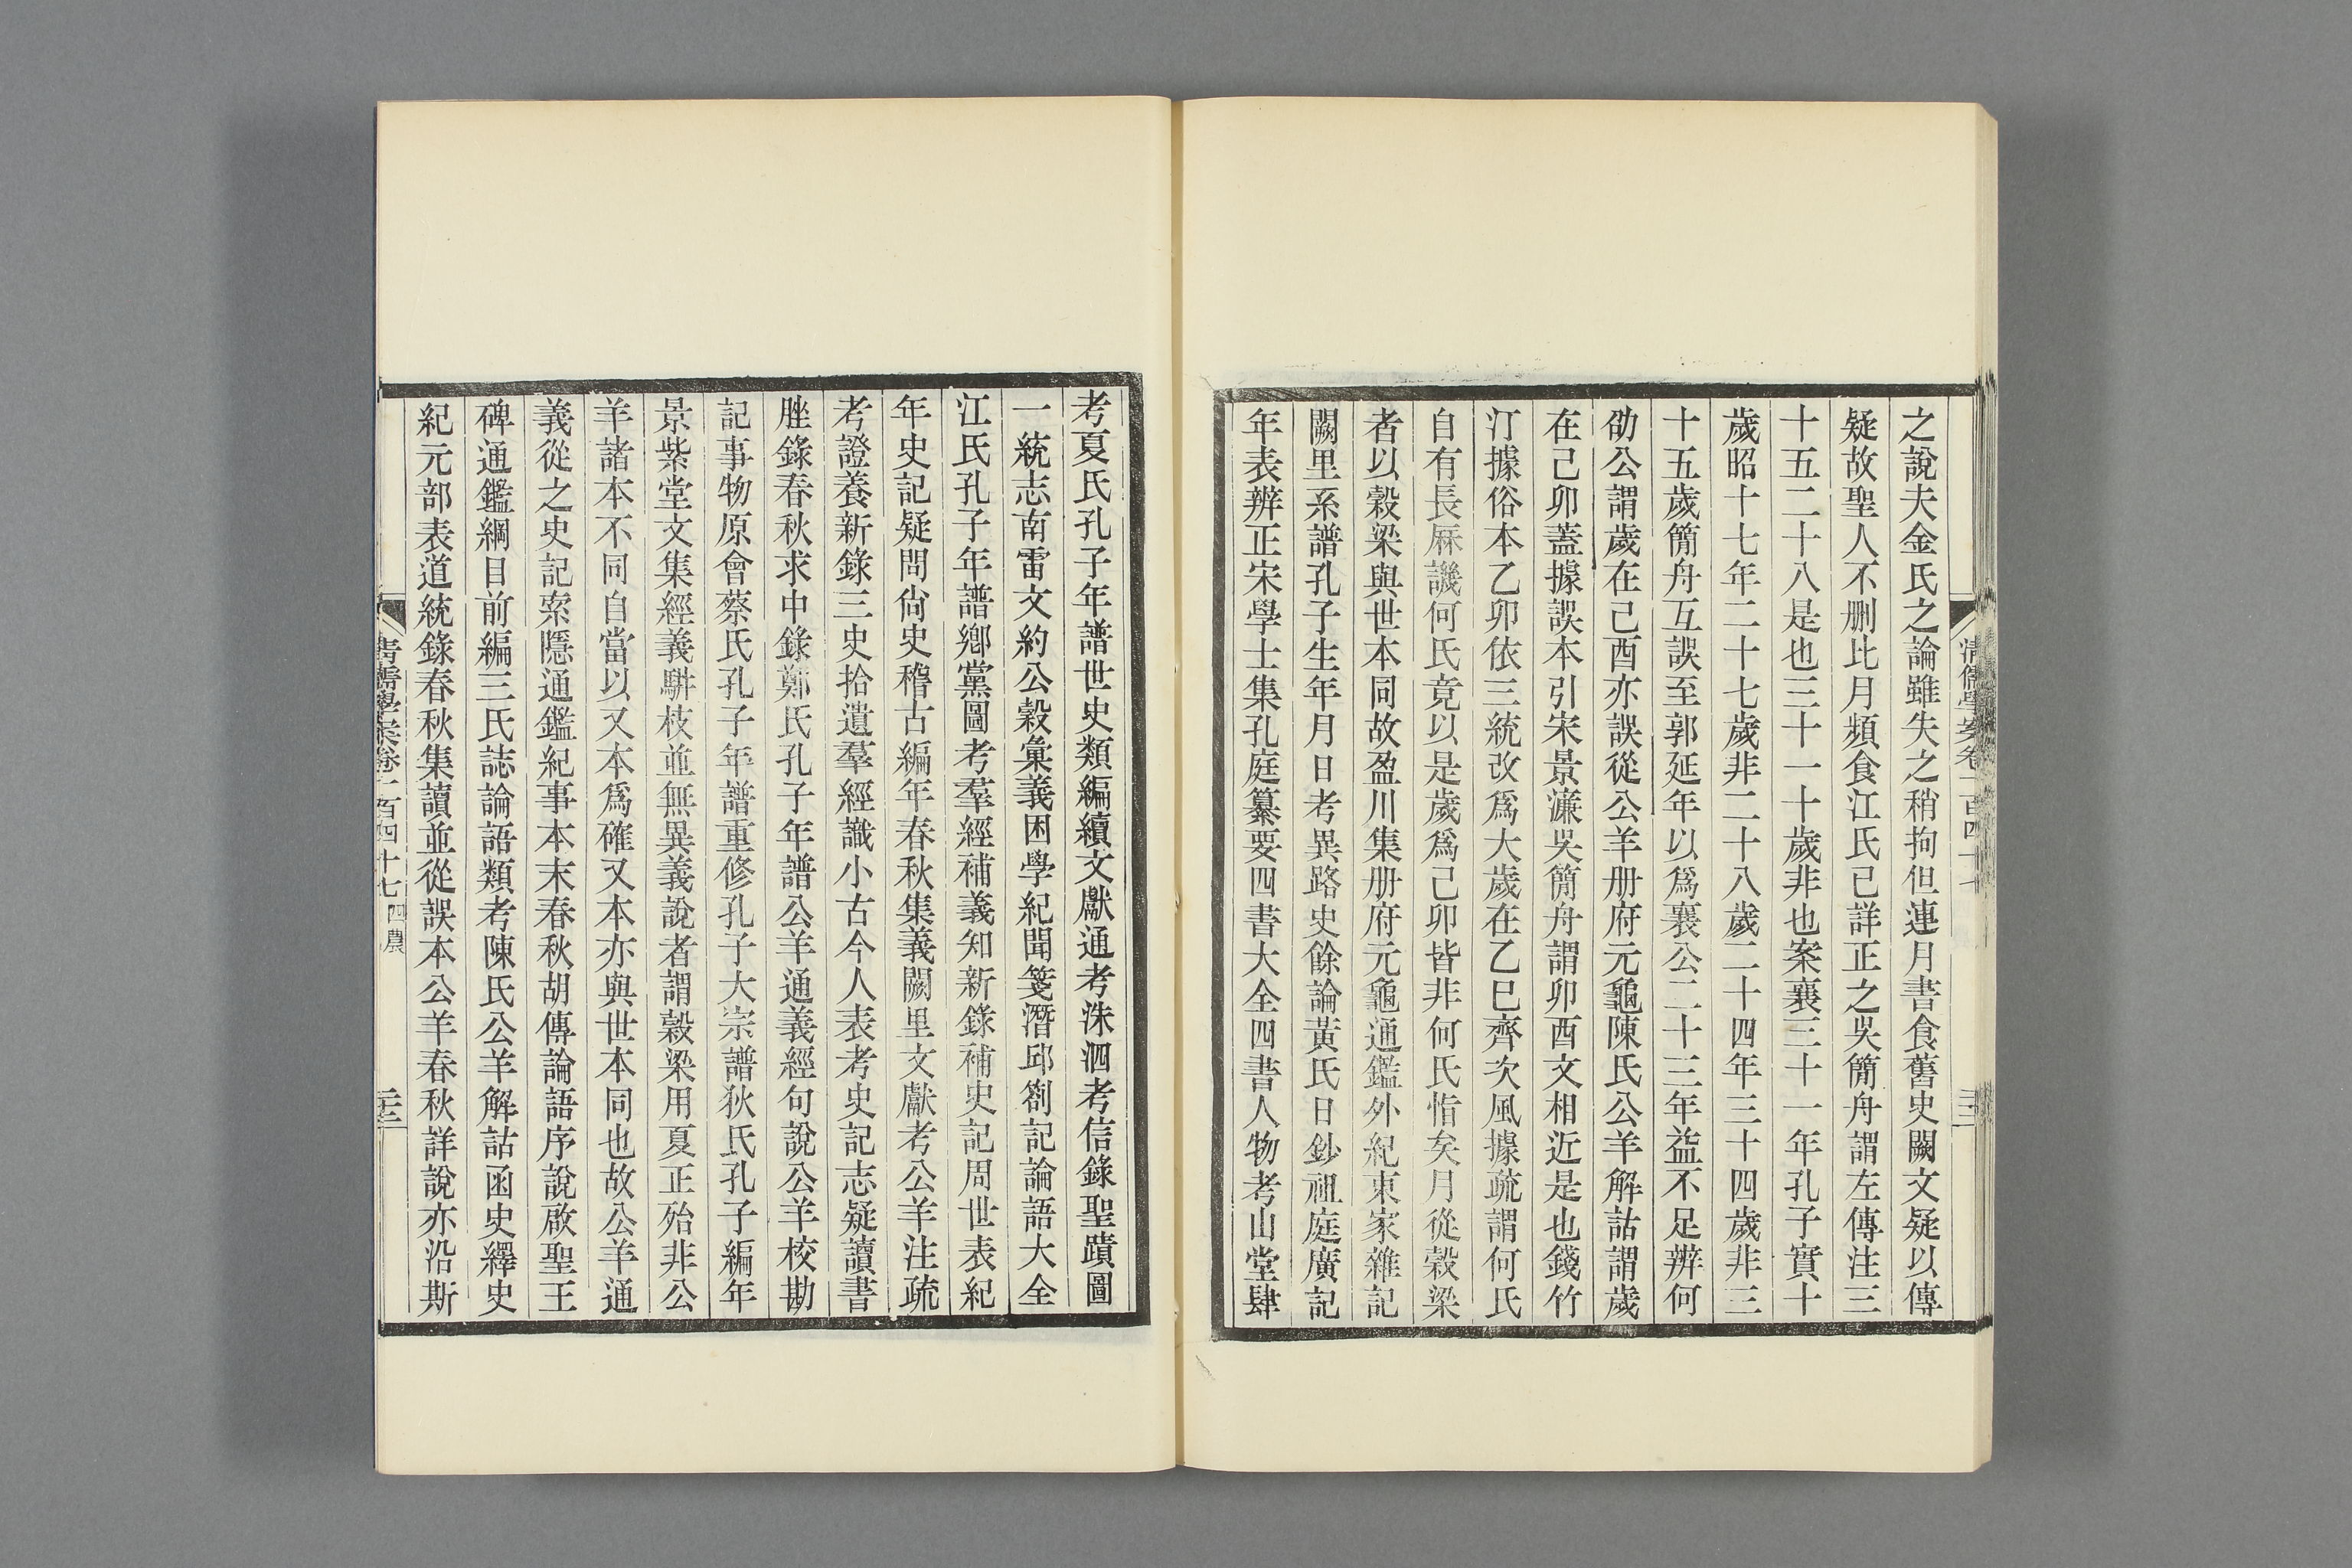 之說夫金氏之論雖失之稍拘但連月書食舊史闕文疑以傳
疑故聖人不刪比月頻食江氏已詳正之吳簡舟謂左傳注三
十五二十八是也三十一十歲非也案襄三十一年孔子實十
歲昭十七年二十七歲非二十八歲二十四年三十四歲非三
十五歲簡舟互誤至郭延年以爲襄公二十三年益不足辨何
劭公謂歲在己酉亦誤從公羊册府元龜陳氏公羊解詁謂歲
在己卯蓋據誤本引宋景濂吳簡舟謂卯酉文相近是也錢竹
汀據俗本乙卯依三統改爲大歲在乙巳齊次風據疏謂何氏
自有長厤譏何氏竟以是歲爲己卯皆非何氏恉矣月從穀梁
者以穀梁與世本同故盈川集册府元龜通鑑外紀東家雜記
闕里系譜孔子生年月日考異路史餘論黃氏日鈔祖庭廣記
年表辨正宋學士集孔庭纂要四書大全四書人物考山堂肆
考夏氏孔子年譜世史類編續文獻通考洙泗考信錄聖蹟圖
一統志南雷文約公穀彙義困學紀聞箋潛邱劄記論語大全
江氏孔子年譜鄉黨圖考羣經補義知新錄補史記周世表紀
年史記疑問尙史稽古編年春秋集義闕里文獻考公羊注疏
考證養新錄三史拾遺羣經識小古今人表考史記志疑讀書
脞錄春秋求中錄鄭氏孔子年譜公羊通義經句說公羊校勘
記事物原會蔡氏孔子年譜重修孔子大宗譜狄氏孔子編年
景紫堂文集經義騈枝並無異義說者謂穀梁用夏正殆非公
羊諸本不同自當以又本爲確又本亦與世本同也故公羊通
義從之史記索隱通鑑紀事本末春秋胡傳論語序說啟聖王
碑通鑑綱目前編三氏誌論語類考陳氏公羊解詁函史繹史
紀元部表道統錄春秋集讀並從誤本公羊春秋詳說亦沿斯
清儒學案卷一百四十七 四農